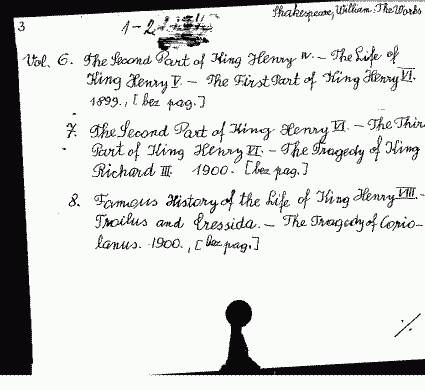 Shakespeare, William: The Works
3
1-2
Vol. 6. The Second Part of King Henry IV. – The Life of
King Henry V. – The First Part of King Henry VI.
1899., [bez pag.]
7. The Second Part of King Henry VI. – The Thir
Part of King Henry VI. – The Tragedy of King
Richard III. 1900. [bez pag.]
8. Famous History of the Life of King Henry VIII. –
Troilus and Cressida. – The Tragedy of Corio–
lanus. 1900., [bez pag.]
./.